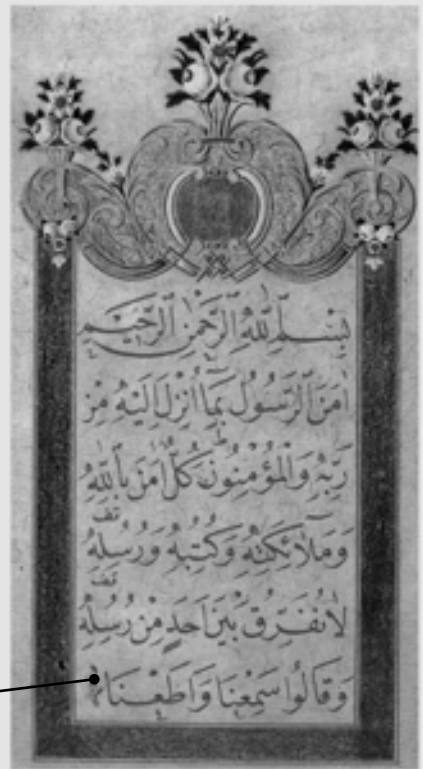 بِسْمِ اللّٰهِ الرَّحْمٰنِ الرَّحِيمِ
اٰمَنَ الرَّسُولُ بِمَٓا اُنْزِلَ اِلَيْهِ مِنْ
رَبِّهِ وَالْمُؤْمِنُونَ كُلٌّ اٰمَنَ بِاللّٰهِ
وَمَلٰٓائِكَتِهِ وَكُتُبِهِ وَرُسُلِهِ
لَا نُفَرِّقُ بَيْنَ اَحَدٍ مِنْ رُسُلِهِ
وَقَالُوا سَمِعْنَا وَاَطَعْنَا